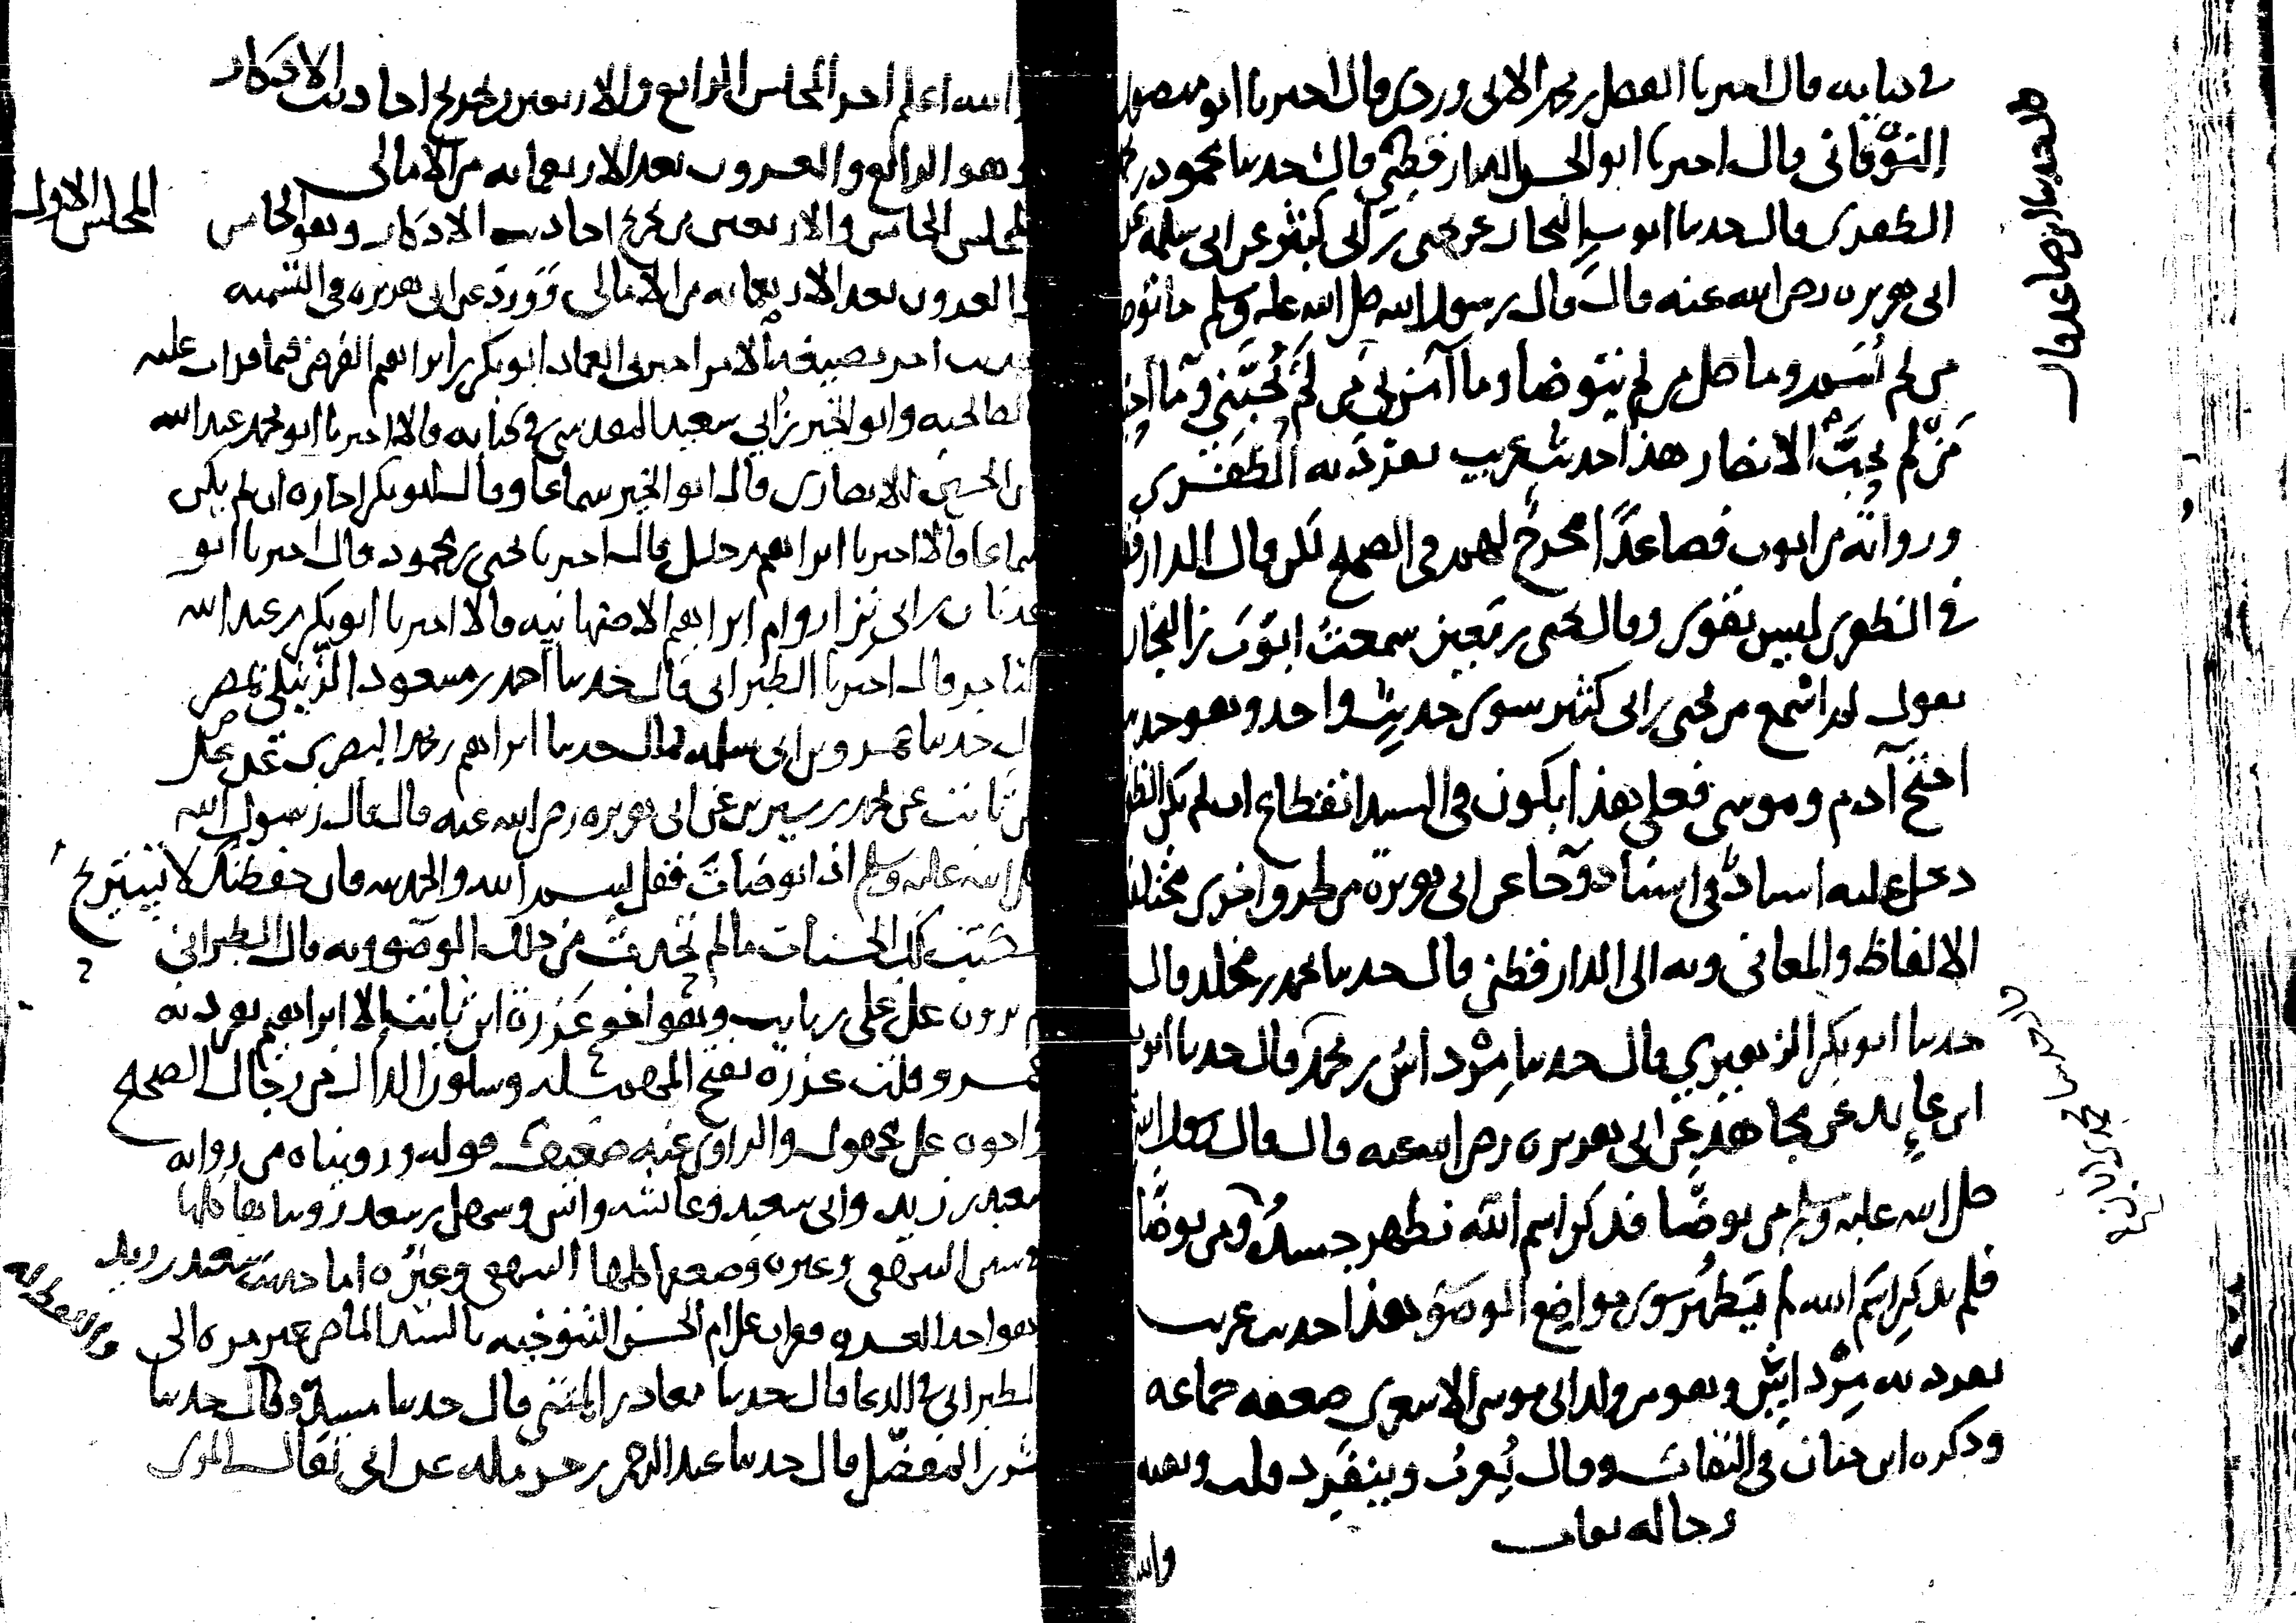 في كتابه قال أخبرنا الفضل بن محمد الابيوردي قال اخبرنا ابو منصور
النوقاني قال اخبرنا ابو الحسن الدارقطني قال حدثنا محمود بن محمد
الظفري قال حدثنا ايوب بن النجار عن يحيى بن أبي كثير عن ابي سلمة عن
ابي هريرة رضي الله عنه قال قال رسول الله صلى الله عليه وسلم ما توضأ
من لم يسم وما صلى من لم يتوضا وما آمن بي من لم يحبني وما
من لم يحب الانصار هذا حديث غريب تفرد به الظفري
ورواته من ايوب فصاعدًا مخرج لهم في الصحيح لكن قال الدارقطني
في الظفري ليس بقوي وقال يحيى بن معين سمعت ايوب بن النجار
يقول لم اسمع من يحيى بن ابي كثير سوى حديث واحد وهو حديث
احتج آدم وموسى فعلى هذا يكون في السند انقطاع ان لم يكن الظفري
دخل عليه اسناد في اسناد وجا عن ابي هريرة من طرق اخرى مختلفة
الالفاظ والمعاني وبه الى الدارقطني قال حدثنا محمد بن مخلد قال
حدثنا ابو بكر الزهيري قال حدثنا مرداس بن محمد قال حدثنا
عن مجاهد عن ابي هريرة رضي الله عنه قال قال رسول الله
صلى الله عليه وسلم من توضأ فذكر اسم الله تطهر جسده ومن توضأ
فلم يذكر اسم الله لم يتطهر سوى مواضع الوضوء هذا حديث غريب
تفرد به مرداس وهو من ولد ابي موسى الاشعري ضعفه جماعة
وذكره ابن حبان في الثقات وقال يغرب وينفرد قلت وبقية
رجاله ثقات
والله
والله اعلم آخر المجلس الرابع والاربعين من تخريج احاديث الاذكار
وهو الرابع والعشرون بعد الاربعمائة من الامالي
المجلس الاول
المجلس الخامس والاربعين من تخريج احاديث الاذكار وهو الخامس
والعشرون بعد الاربعمائة من الامالي وورد عن ابي هريرة في التسمية
حديث آخر بصيغة الأمر اخبرني العماد ابو بكر بن ابراهيم الفرضي فيما قرات عليه
بالصالحية وابو الخير بن أبي سعيد المقدسي في كتابه قالا اخبرنا ابو محمد عبد الله
بن الحسين الانصاري قال ابو الخير سماعا وقال ابو بكر اجازة ان لم يكن
سماعا قالا اخبرنا ابراهيم بن خليل قال اخبرنا يحيى بن محمود قال اخبرنا ابو
عدنان بن ابي نزار وام ابراهيم الاصبهانية قالا اخبرنا ابو بكر بن عبد الله
التاجر قال اخبرنا الطبراني قال حدثنا احمد بن مسعود الزنبري بمصر
قال حدثنا عمرو بن ابي سلمة قال حدثنا ابراهيم بن محمد البصري عن علي
بن ثابت عن محمد بن سيرين عن ابي هريرة رضي الله عنه قال قال رسول الله
صلى الله عليه وسلم اذا توضأت فقل بسم الله والحمد لله فان حفظتك لا تستريح
تكتب لك الحسنات مالم تحدث من ذلك الوضوء وبه قال الطبراني
لم يروه عن علي بن ثابت وهو اخو عزرة ابن ثابت إلا ابراهيم تفرد به
عمرو قلت عزرة بفتح المهملة وسكون الزاي من رجال الصحيح
واخوه علي مجهول والراوي عنه ضعيف قوله وروينا من رواية
سعيد بن زيد وابي سعيد وعائشة وانس وسهل بن سعد رويناها كلها
في سنن البيهقي وغيره وضعفها كلها البيهقي وغيره اما حديث سعيد بن زيد
بالسند الماضي غير مرة الى
الطبراني في الدعا قال حدثنا معاذ بن المثنى قال حدثنا مسدد قال حدثنا
بشر بن المفضل قال حدثنا عبد الرحمن بن حرملة عن ابي ثفال المري